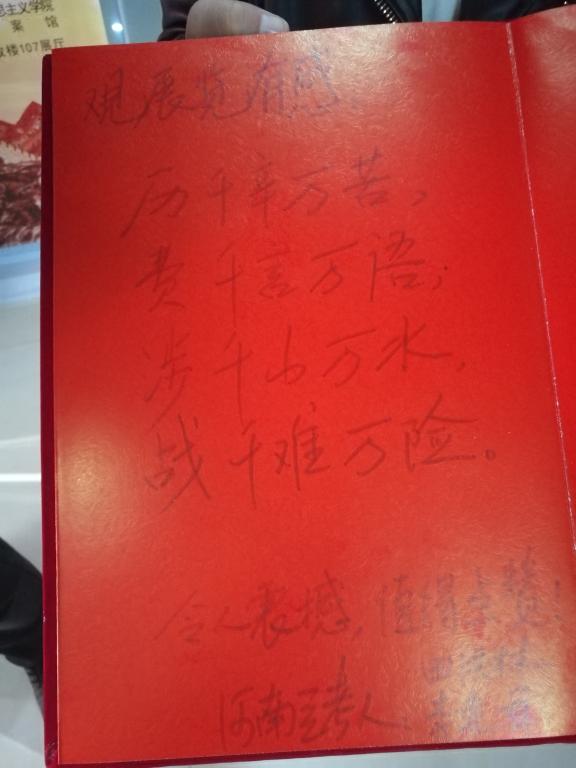 思主义学院
案馆
楼107展厅
观展览有感:
历千辛万苦,
费千言万语;
涉千山万水,
战千难万险。
令人震撼,值得亲览!
河南 人